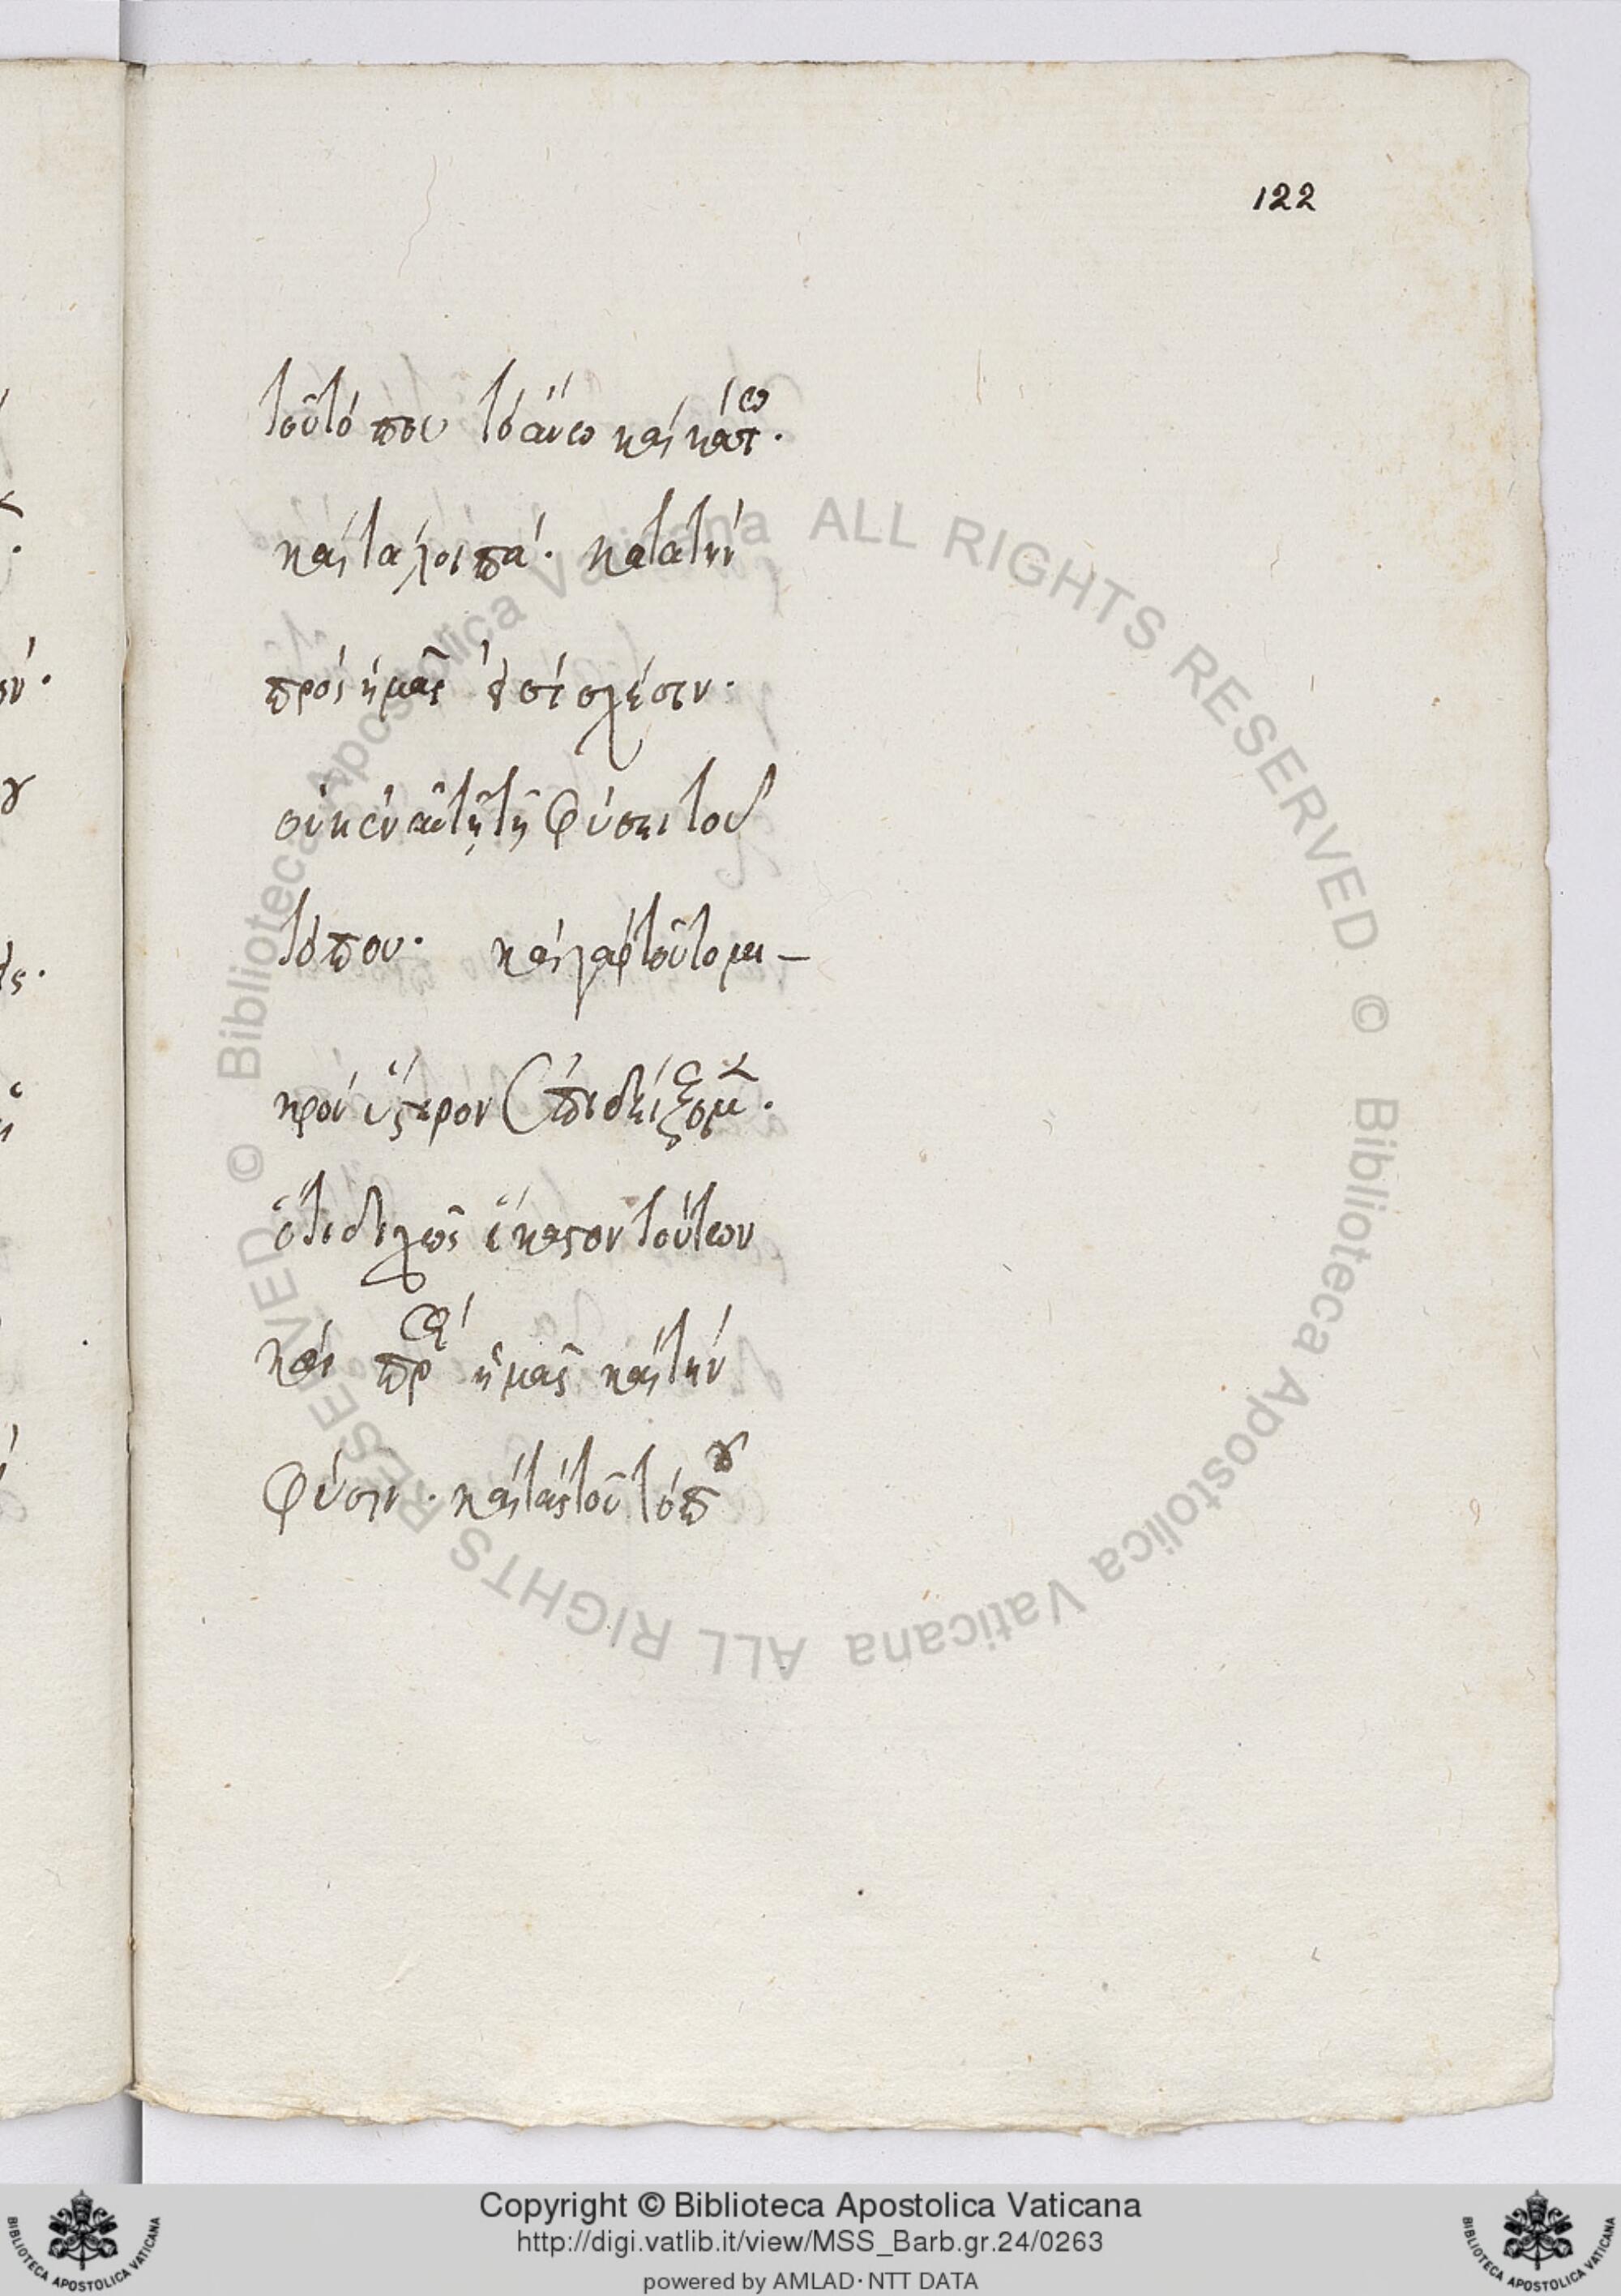 122
τοῦτό που τὸ ἄνω καὶ κάτω.
καὶ τὰ λοιπά. κατὰ τὴν
πρὸς ἡμᾶς ἐστὶ σχέσιν.
οὐκ ἐν αὐτῆ τῆ φύσει τοῦ
τόπου. καὶ γὰρ τοῦτο μι-
κρὸν ὕστερον ἐπιδείξομεν.
ὅτι διχῶς ἕκαστον τούτων
καὶ πρὸς ἡμᾶς καὶ τὴν
φύσιν. καὶ τὰς τοῦ τόπου
© Biblioteca Apostolica Vaticana ALL RIGHTS RESERVED © Biblioteca Apostolica Vaticana ALL RIGHTS RESERVED
Copyright © Biblioteca Apostolica Vaticana
http://digi.vatlib.it/view/MSS_Barb.gr.24/0263
powered by AMLAD · NTT DATA
BIBLIOTECA APOSTOLICA VATICANA
BIBLIOTECA APOSTOLICA VATICANA